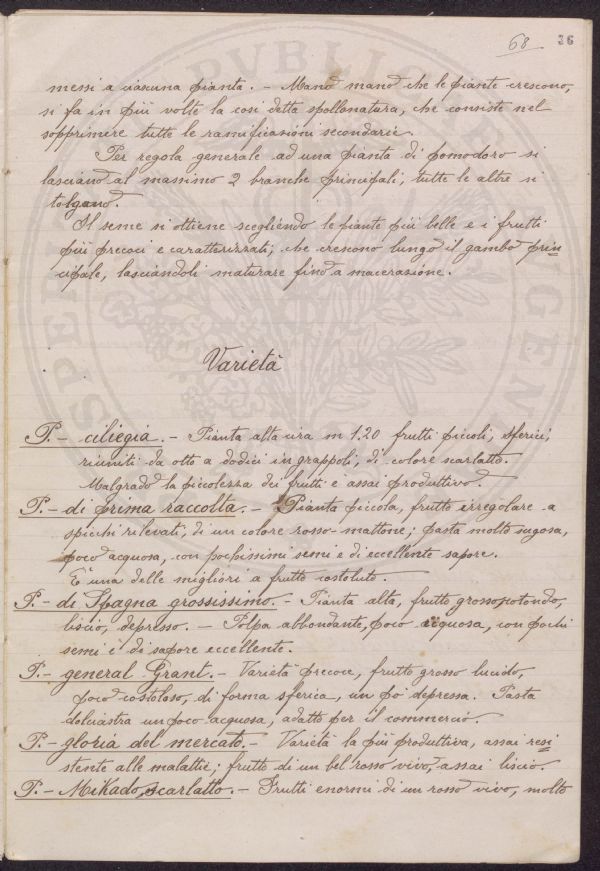 68 36
messi a ciascuna pianta. - Mano mano che le piante crescono,
si fa in più volte la cosi detta spollonatura, che consiste nel
sopprimere tutte le ramificazioni secondarie.
Per regola generale ad una pianta di pomodoro si
lasciano al massimo 2 branche principali, tutte le altre si
tolgano.
Il seme si ottiene scegliendo le piante più belle e i frutti
più precoci e caratterizzati, che crescono lungo il gambo prin
cipale, lasciandoli maturare fino a macerazione.
Varietà
P.- ciliegia. - Pianta alta circa m 1.20 frutti piccoli, sferici,
riuniti da otto a dodici in grappoli, di colore scarlatto.
Malgrado la piccolezza dei frutti è assai produttivo.
P.- di prima raccolta. - Pianta piccola, frutto irregolare a
spicchi rilevati, di un colore rosso-mattone; pasta molto sugosa,
poco acquosa, con pochissimi semi e di eccellente sapore.
E' una delle migliori a frutto costoluto.
P.- di Spagna grossissimo. - Pianta alta, frutto grosso, rotondo,
liscio, depresso. - Polpa abbondante, poco acquosa, con pochi
semi e di sapore eccellente.
P.- general Grant. - Varietà precoce, frutto grosso lucido,
poco costoloso, di forma sferica, un po' depressa. Pasta
dolciastra un poco acquosa, adatto per il commercio.
P.- gloria del mercato. - Varietà la più produttiva, assai resi
stente alle malattie; frutto di un bel rosso vivo, assai liscio.
P.- Mikado, scarlatto. - Frutti enormi di un rosso vivo, molto
PUBLICAE
SPERIMENTALE